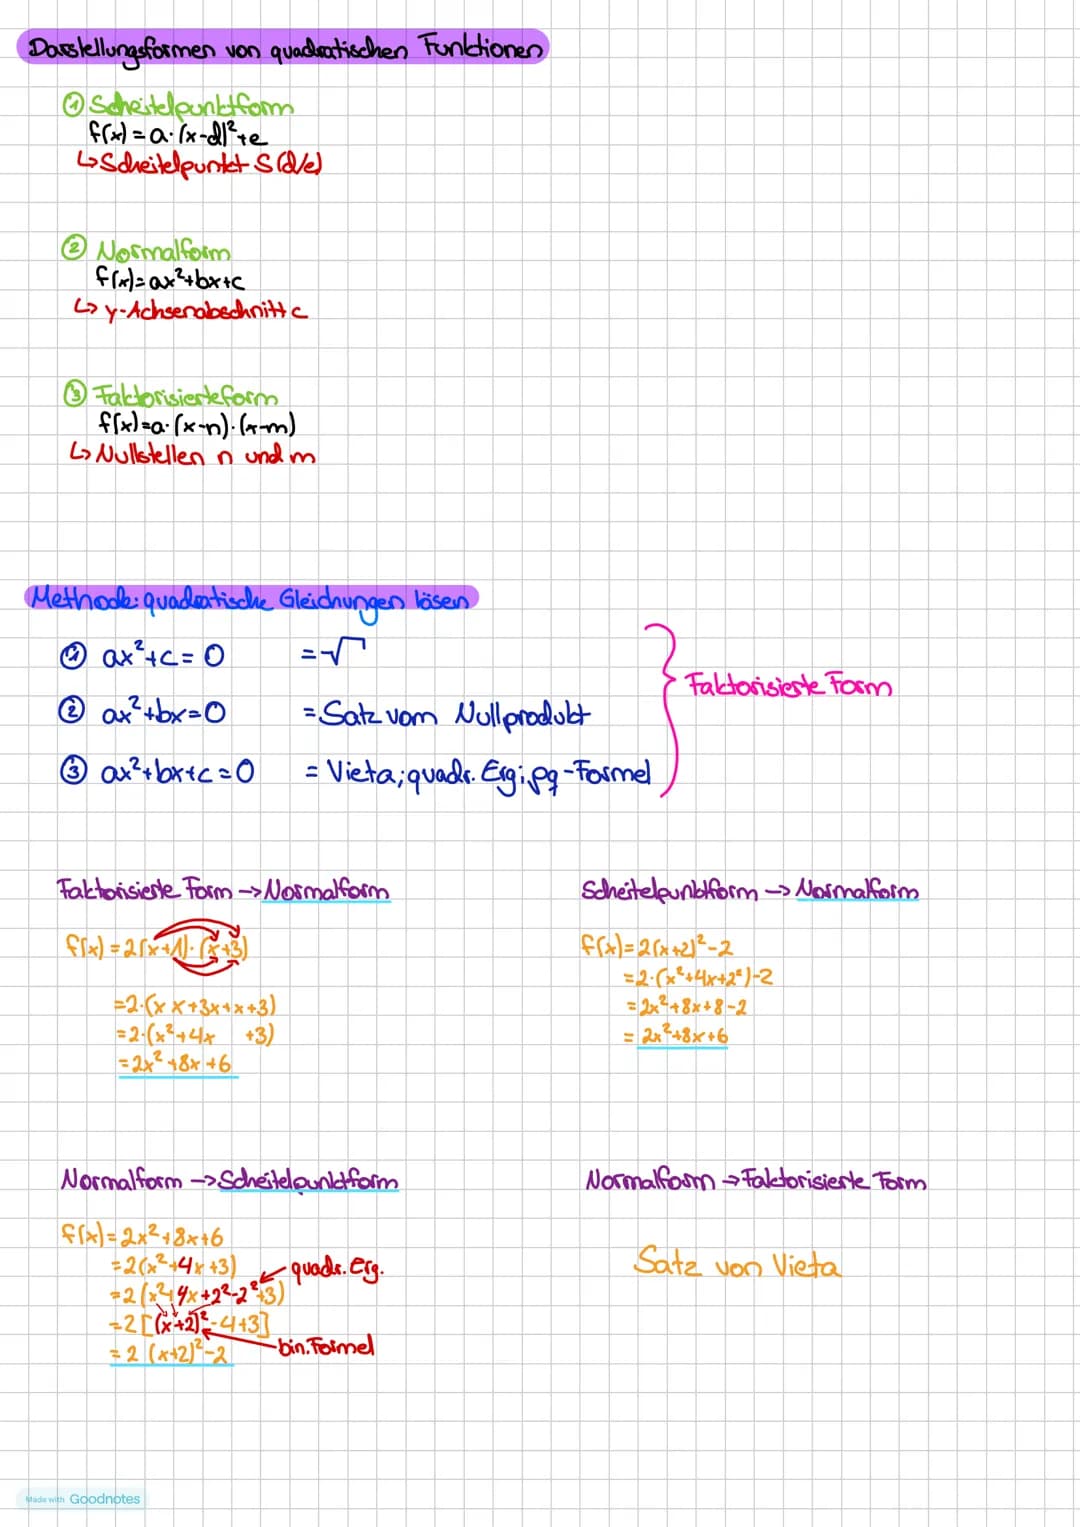 Darstellungsformen von quadratischen Funktionen
① Scheitelpunktform
f(x) = a·(x-d)²+e
↳ Scheitelpunkt S(d/e)
② Normalform
f(x)= ax²+bx+c
↳ y-Achsenabschnitt c
③ Faktorisierteform
f(x)=a·(x-n)·(x-m)
↳ Nullstellen n und m
Methode: quadratische Gleichungen lösen
① ax²+c= 0 =√
② ax²+bx=0 = Satz vom Nullprodukt
③ ax²+bx+c=0 = Vieta; quadr. Erg; pq-Formel
Faktorisierte Form
Faktorisierte Form -> Normalform
f(x) = 2(x+1)·(x+3)
=2·(x x+3x+x+3)
=2·(x²+4x +3)
=2x² +8x +6
Scheitelpunktform -> Normalform
f(x)=2(x+2)²-2
=2·(x²+4x+2²)-2
=2x²+8x+8-2
= 2x²+8x+6
Normalform -> Scheitelpunktform
f(x)= 2x²+8x+6
=2(x²+4x+3)
quadr. Erg.
=2(x²+4x+2²-2²+3)
=2[(x+2)²-4+3]
bin. Formel
= 2 (x+2)²-2
Normalform -> Faktorisierte Form
Satz von Vieta
Made with Goodnotes